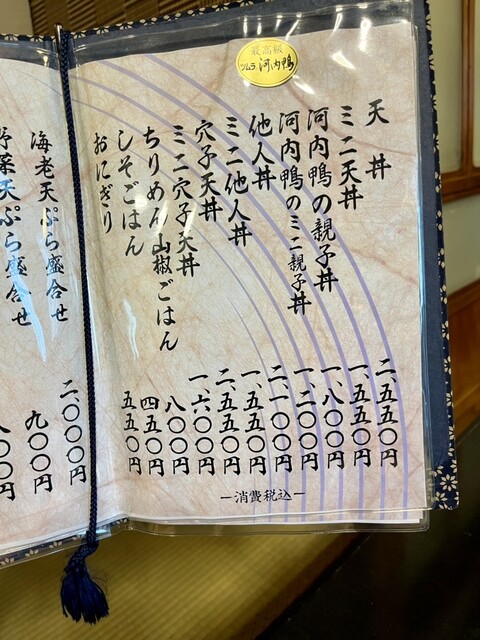 最高級
ツムラ 河内鴨
天丼 二、五五〇円
ミニ天丼 一、五五〇円
河内鴨の親子丼 一、八〇〇円
河内鴨のミニ親子丼 一、二〇〇円
他人丼 二、一〇〇円
ミニ他人丼 一、五五〇円
穴子天丼 二、五五〇円
ミニ穴子天丼 一、六〇〇円
ちりめん山椒ごはん 八〇〇円
しそごはん 四五〇円
おにぎり 五五〇円
―消費税込―
海老天ぷら盛合せ 二、〇〇〇円
野菜天ぷら盛合せ 九〇〇円